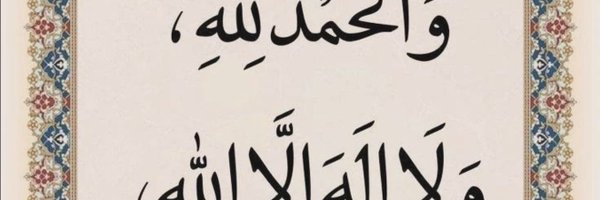 وَالْحَمْدُ لِلَّهِ،
وَلَا إِلَهَ إِلَّا اللهُ،